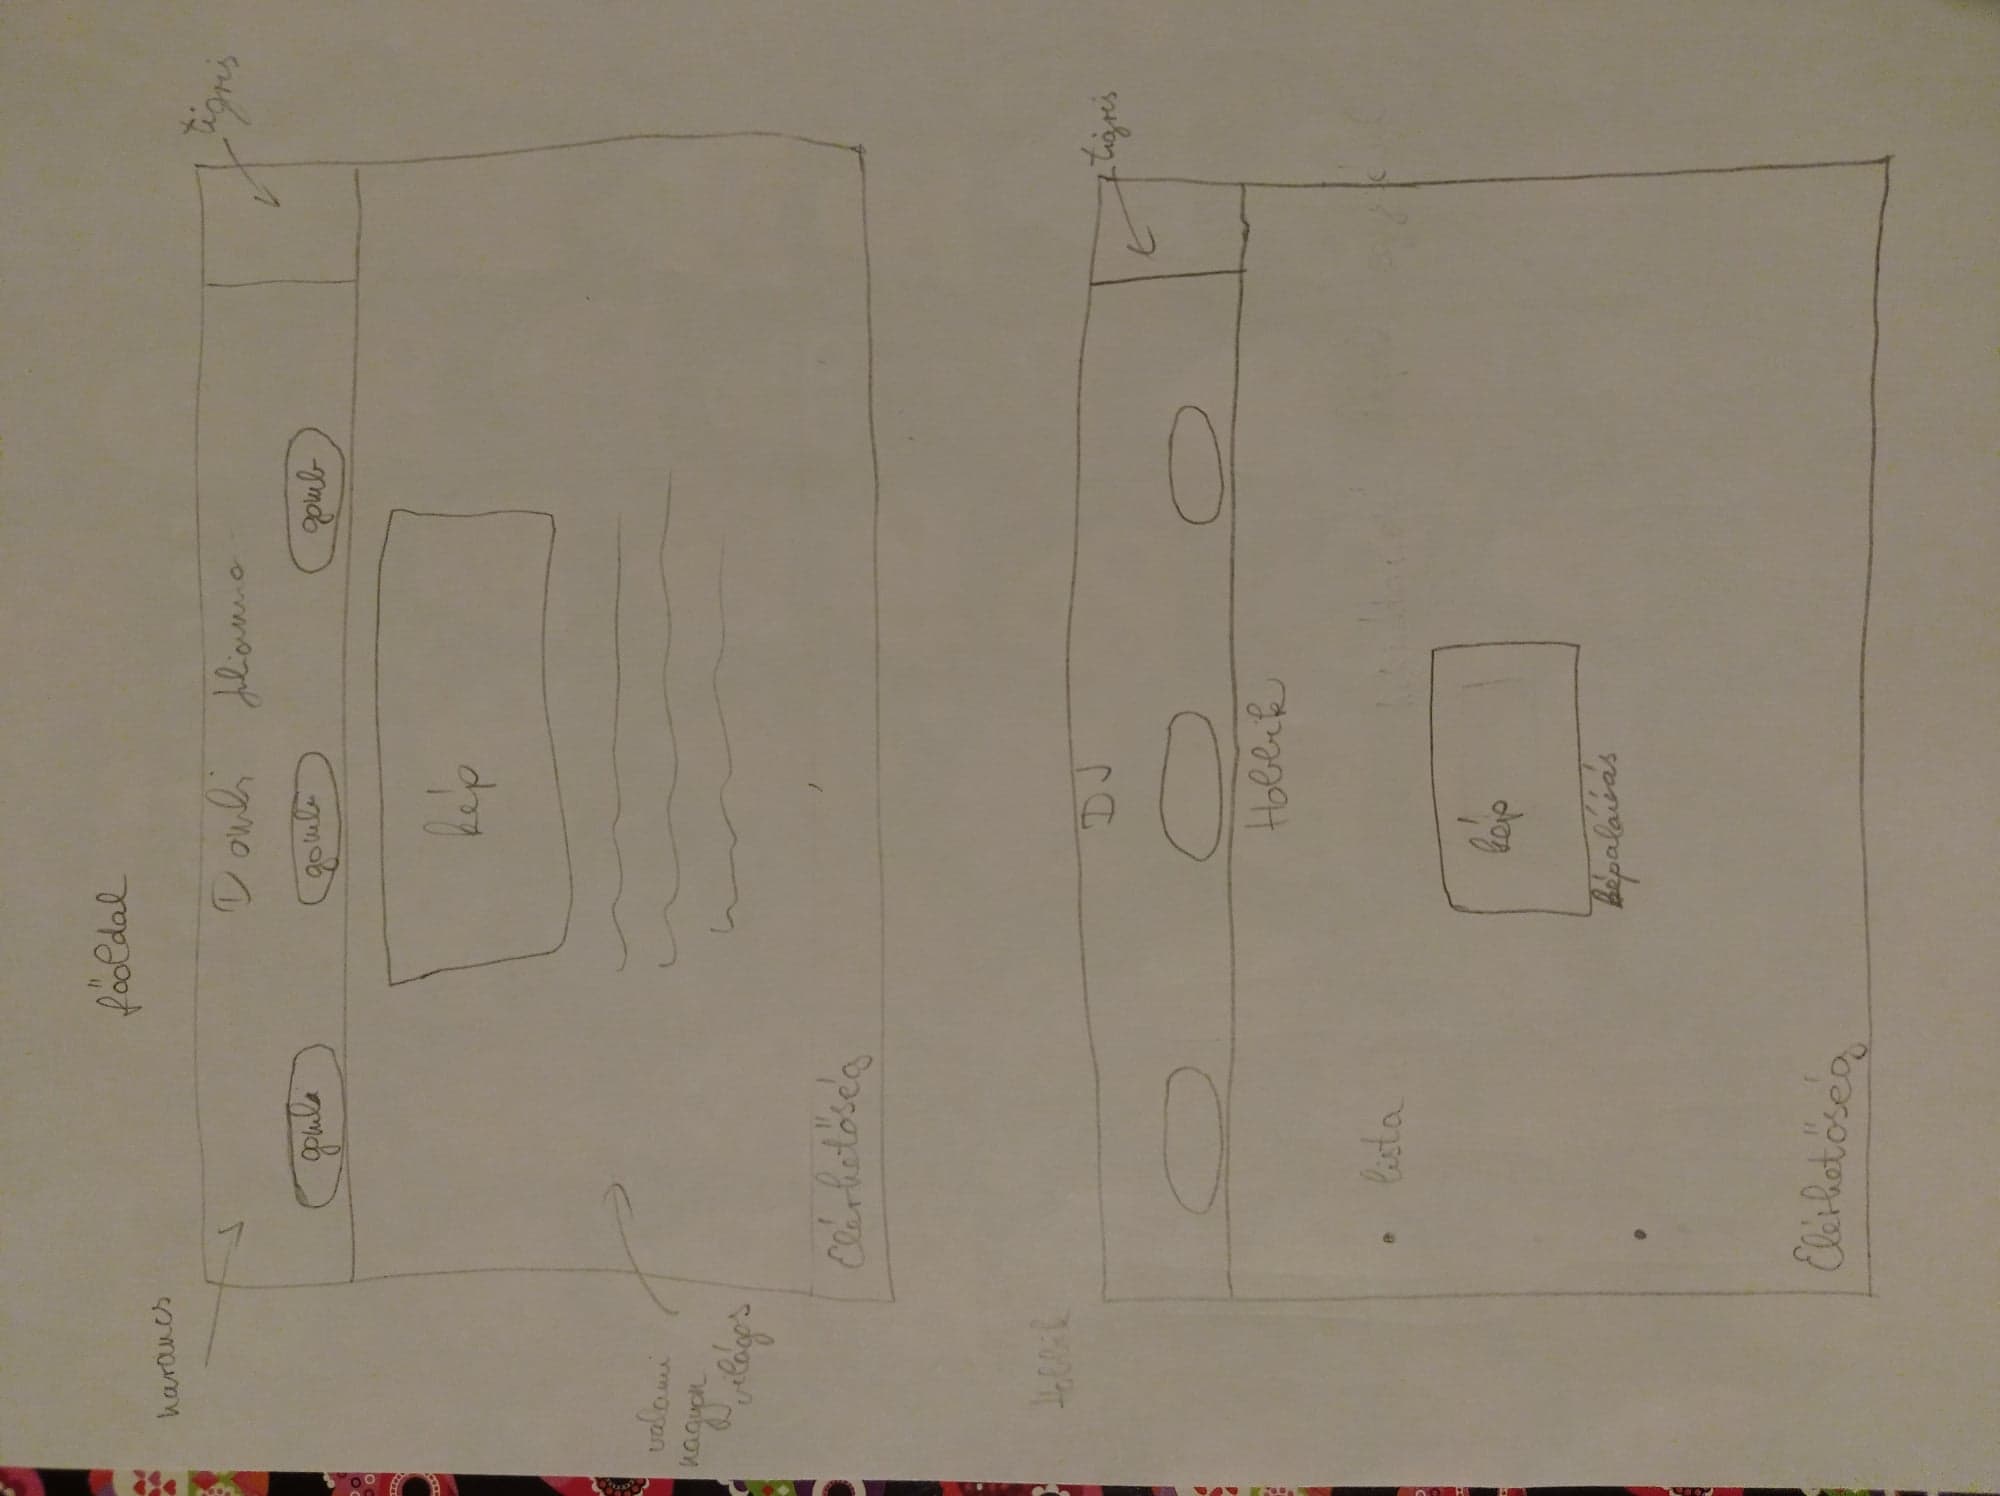 főoldal
narancs
tigris
Dombi Julianna
gomb gomb gomb
kép
valami
nagyon
világos
Elérhetőség
Hobbik
DJ
tigris
Hobbik
• lista
kép
képaláírás
•
Elérhetőség